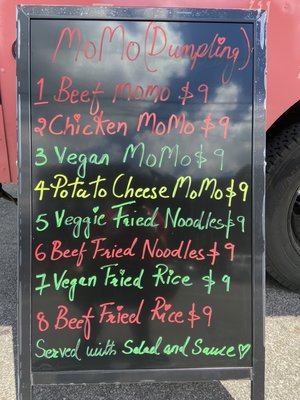 MoMo (Dumpling)
1 Beef MoMo $9
2 Chicken MoMo $9
3 Vegan MoMo $9
4 Potato Cheese MoMo $9
5 Veggie Fried Noodles $9
6 Beef Fried Noodles $9
7 Vegan Fried Rice $9
8 Beef Fried Rice $9
Served with Salad and Sauce